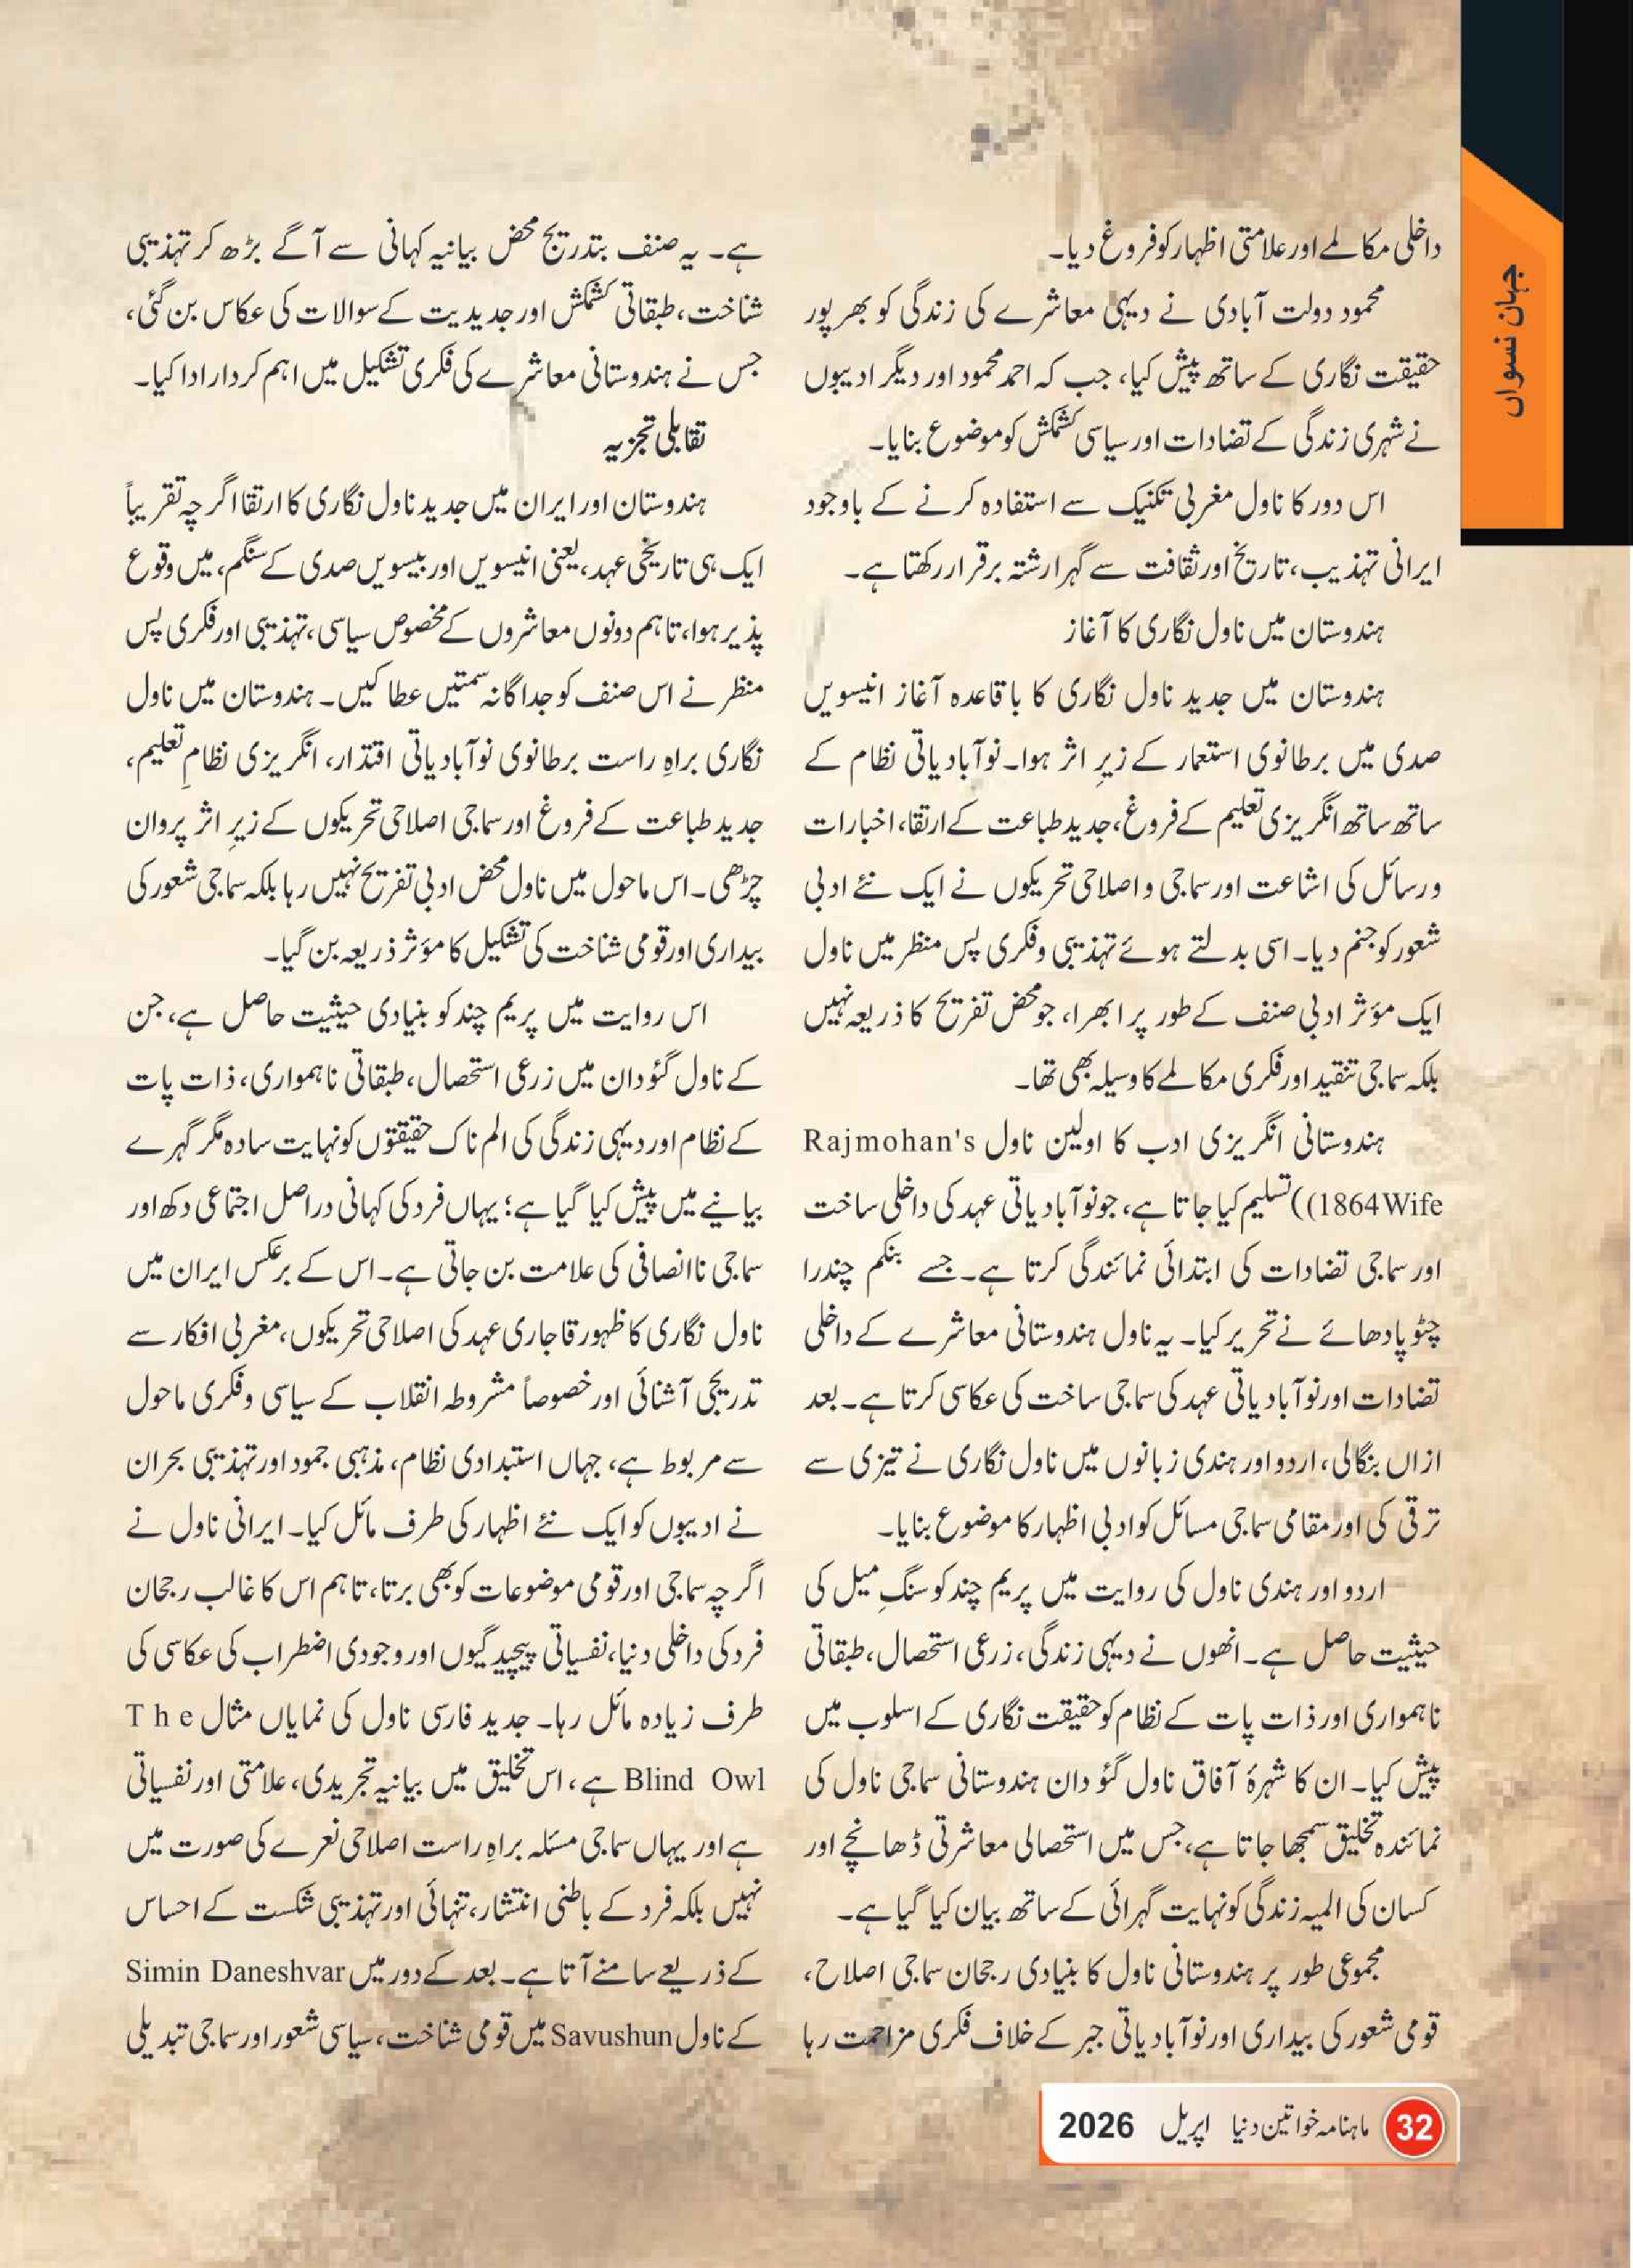 جہان نسواں
داخلی مکالمے اور علامتی اظہار کو فروغ دیا۔
محمود دولت آبادی نے دیہی معاشرے کی زندگی کو بھرپور
حقیقت نگاری کے ساتھ پیش کیا، جب کہ احمد محمود اور دیگر ادیبوں
نے شہری زندگی کے تضادات اور سیاسی کشمکش کو موضوع بنایا۔
اس دور کا ناول مغربی تکنیک سے استفادہ کرنے کے باوجود
ایرانی تہذیب، تاریخ اور ثقافت سے گہرا رشتہ برقرار رکھتا ہے۔
ہندوستان میں ناول نگاری کا آغاز
ہندوستان میں جدید ناول نگاری کا باقاعدہ آغاز انیسویں
صدی میں برطانوی استعمار کے زیرِ اثر ہوا۔ نوآبادیاتی نظام کے
ساتھ ساتھ انگریزی تعلیم کے فروغ، جدید طباعت کے ارتقا، اخبارات
و رسائل کی اشاعت اور سماجی و اصلاحی تحریکوں نے ایک نئے ادبی
شعور کو جنم دیا۔ اسی بدلتے ہوئے تہذیبی و فکری پس منظر میں ناول
ایک مؤثر ادبی صنف کے طور پر ابھرا، جو محض تفریح کا ذریعہ نہیں
بلکہ سماجی تنقید اور فکری مکالمے کا وسیلہ بھی تھا۔
ہندوستانی انگریزی ادب کا اولین ناول Rajmohan's
1864Wife)) تسلیم کیا جاتا ہے، جو نوآبادیاتی عہد کی داخلی ساخت
اور سماجی تضادات کی ابتدائی نمائندگی کرتا ہے۔ جسے بنکم چندرا
چٹوپادھائے نے تحریر کیا۔ یہ ناول ہندوستانی معاشرے کے داخلی
تضادات اور نوآبادیاتی عہد کی سماجی ساخت کی عکاسی کرتا ہے۔ بعد
ازاں بنگالی، اردو اور ہندی زبانوں میں ناول نگاری نے تیزی سے
ترقی کی اور مقامی سماجی مسائل کو ادبی اظہار کا موضوع بنایا۔
اردو اور ہندی ناول کی روایت میں پریم چند کو سنگِ میل کی
حیثیت حاصل ہے۔ انھوں نے دیہی زندگی، زرعی استحصال، طبقاتی
ناہمواری اور ذات پات کے نظام کو حقیقت نگاری کے اسلوب میں
پیش کیا۔ ان کا شہرۂ آفاق ناول گئو دان ہندوستانی سماجی ناول کی
نمائندہ تخلیق سمجھا جاتا ہے، جس میں استحصالی معاشرتی ڈھانچے اور
کسان کی المیہ زندگی کو نہایت گہرائی کے ساتھ بیان کیا گیا ہے۔
مجموعی طور پر ہندوستانی ناول کا بنیادی رجحان سماجی اصلاح،
قومی شعور کی بیداری اور نوآبادیاتی جبر کے خلاف فکری مزاحمت رہا
ہے۔ یہ صنف بتدریج محض بیانیہ کہانی سے آگے بڑھ کر تہذیبی
شناخت، طبقاتی کشمکش اور جدیدیت کے سوالات کی عکاس بن گئی،
جس نے ہندوستانی معاشرے کی فکری تشکیل میں اہم کردار ادا کیا۔
تقابلی تجزیہ
ہندوستان اور ایران میں جدید ناول نگاری کا ارتقا اگرچہ تقریباً
ایک ہی تاریخی عہد، یعنی انیسویں اور بیسویں صدی کے سنگم، میں وقوع
پذیر ہوا، تاہم دونوں معاشروں کے مخصوص سیاسی، تہذیبی اور فکری پس
منظر نے اس صنف کو جداگانہ سمتیں عطا کیں۔ ہندوستان میں ناول
نگاری براہِ راست برطانوی نوآبادیاتی اقتدار، انگریزی نظامِ تعلیم،
جدید طباعت کے فروغ اور سماجی اصلاحی تحریکوں کے زیرِ اثر پروان
چڑھی۔ اس ماحول میں ناول محض ادبی تفریح نہیں رہا بلکہ سماجی شعور کی
بیداری اور قومی شناخت کی تشکیل کا مؤثر ذریعہ بن گیا۔
اس روایت میں پریم چند کو بنیادی حیثیت حاصل ہے، جن
کے ناول گئودان میں زرعی استحصال، طبقاتی ناہمواری، ذات پات
کے نظام اور دیہی زندگی کی الم ناک حقیقتوں کو نہایت سادہ مگر گہرے
بیانیے میں پیش کیا گیا ہے؛ یہاں فرد کی کہانی دراصل اجتماعی دکھ اور
سماجی ناانصافی کی علامت بن جاتی ہے۔ اس کے برعکس ایران میں
ناول نگاری کا ظہور قاجاری عہد کی اصلاحی تحریکوں، مغربی افکار سے
تدریجی آشنائی اور خصوصاً مشروطہ انقلاب کے سیاسی و فکری ماحول
سے مربوط ہے، جہاں استبدادی نظام، مذہبی جمود اور تہذیبی بحران
نے ادیبوں کو ایک نئے اظہار کی طرف مائل کیا۔ ایرانی ناول نے
اگرچہ سماجی اور قومی موضوعات کو بھی برتا، تاہم اس کا غالب رجحان
فرد کی داخلی دنیا، نفسیاتی پیچیدگیوں اور وجودی اضطراب کی عکاسی کی
طرف زیادہ مائل رہا۔ جدید فارسی ناول کی نمایاں مثال The
Blind Owl ہے، اس تخلیق میں بیانیہ تجریدی، علامتی اور نفسیاتی
ہے اور یہاں سماجی مسئلہ براہِ راست اصلاحی نعرے کی صورت میں
نہیں بلکہ فرد کے باطنی انتشار، تنہائی اور تہذیبی شکست کے احساس
کے ذریعے سامنے آتا ہے۔ بعد کے دور میں Simin Daneshvar
کے ناول Savushun میں قومی شناخت، سیاسی شعور اور سماجی تبدیلی
32 ماہنامہ خواتین دنیا اپریل 2026